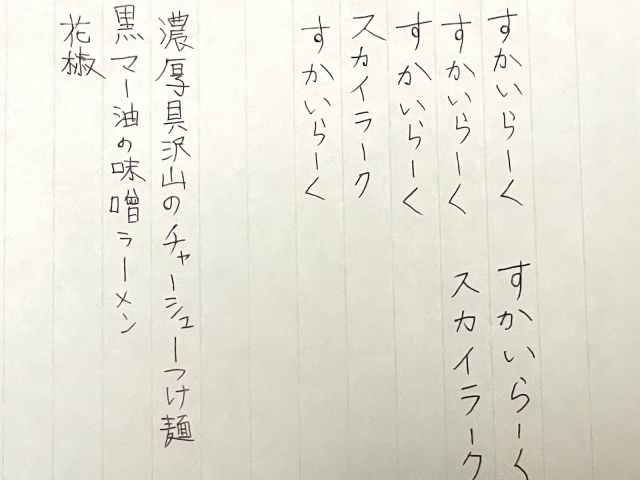 すかいらーく　すかいらーく
すかいらーく　スカイラーク
すかいらーく
スカイラーク
すかいらーく
濃厚具沢山のチャーシューつけ麺
黒マー油の味噌ラーメン
花椒